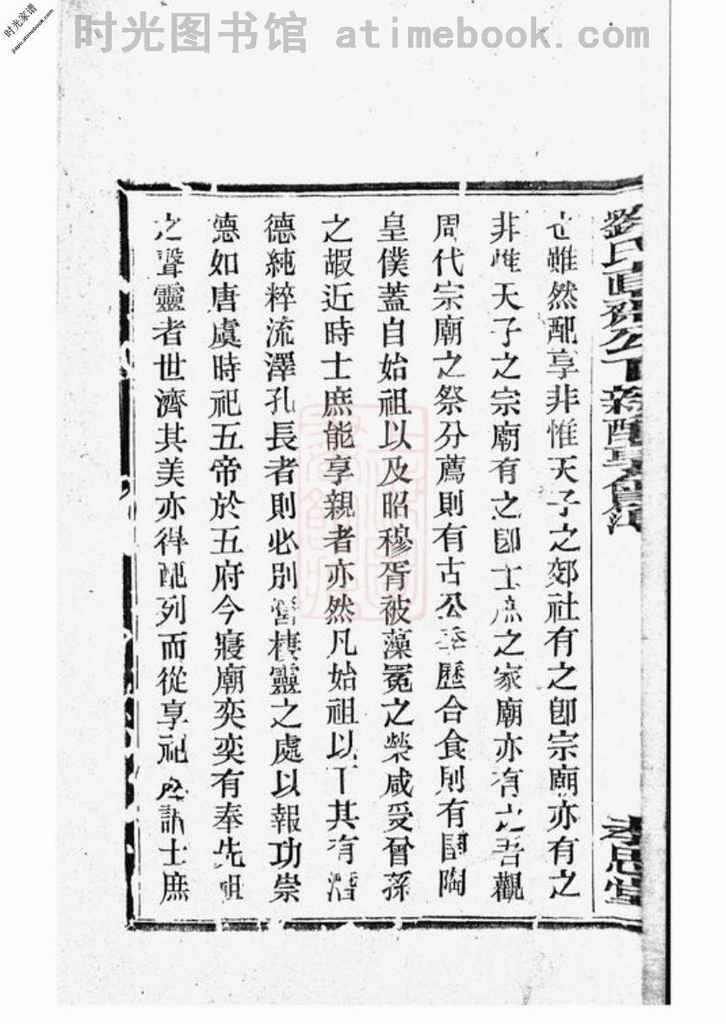 时光图书馆 atimebook.com
时光家谱
jiapu.atimebook.com
也雖然配享非惟天子之郊社有之卽宗廟亦有之
非惟天子之宗廟有之卽士庶之家廟亦有之吾觀
周代宗廟之祭分薦則有古公季歷合食則有圉陶
皇僕蓋自始祖以及昭穆胥被藻冕之榮咸受曾孫
之嘏近時士庶能享親者亦然凡始祖以下其有潛
德純粹流澤孔長者則必別營棲靈之處以報功崇
德如唐虞時祀五帝於五府今寢廟奕奕有奉先祖
之聲靈者世濟其美亦得配列而從享祀之訓士庶
劉氏 公下新配享
孝思堂